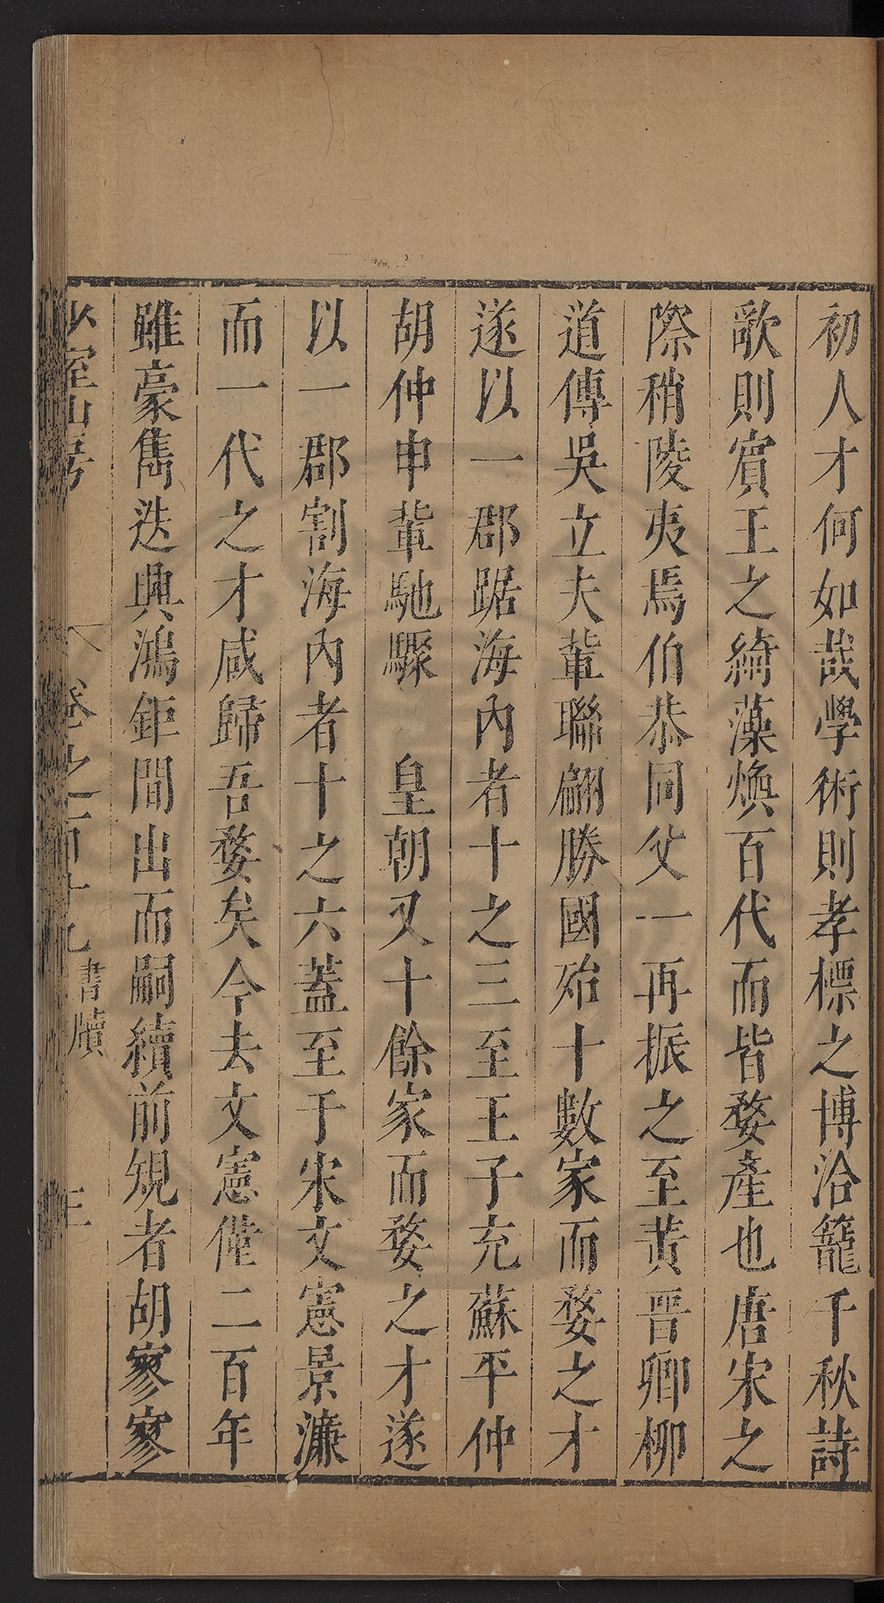 初人才何如哉學術則孝標之博洽籠千秋詩
歌則賓王之綺藻煥百代而皆婺產也唐宋之
際稍陵夷焉伯恭同父一再振之至黃晉卿柳
道傳吳立夫輩聯翩勝國殆十數家而婺之才
遂以一郡踞海內者十之三至王子充蘇平仲
胡仲申輩馳驟　皇朝又十餘家而婺之才遂
以一郡割海內者十之六蓋至于宋文憲景濂
而一代之才咸歸吾婺矣今去文憲僅二百年
雖豪雋迭興鴻鉅間出而嗣續前規者胡寥寥
少室山房　卷之百十九　書牘　三